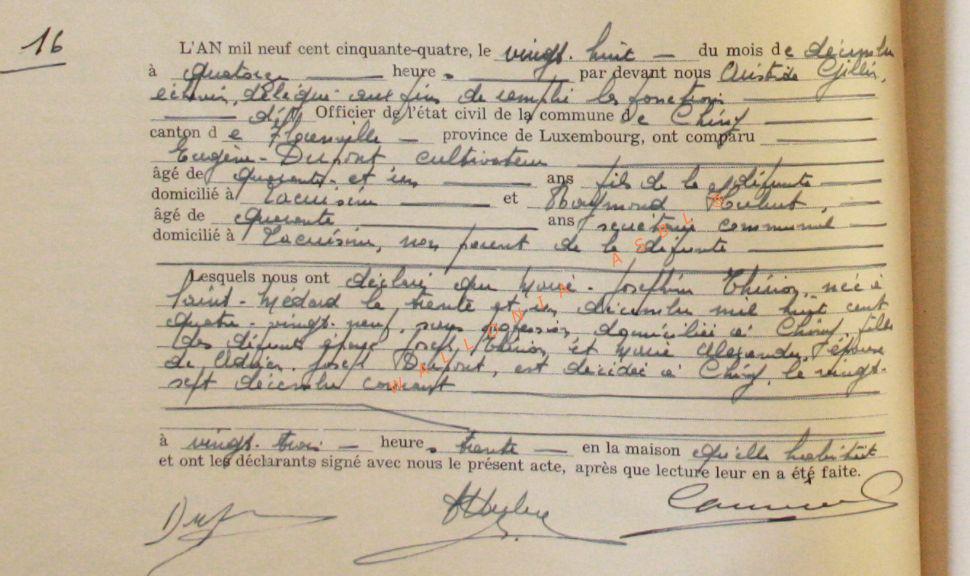 16
L'AN mil neuf cent cinquante-quatre, le vingt-huit du mois de décembre
à quatorze heures par devant nous Aristide Gillin,
échevin, délégué aux fins de remplir les fonctions
dit Officier de l'état civil de la commune de Chiny
canton de Florenville province de Luxembourg, ont comparu
Eugène Dupont, cultivateur
âgé de quarante et un ans fils de la défunte
domicilié à Lacuisine et Raymond Hubert,
âgé de quarante ans secrétaire communal
domicilié à Lacuisine, non parent de la défunte
Lesquels nous ont déclaré que Marie-Joséphine Thiry, née à
Saint-Médard le trente et un décembre mil huit cent
quatre-vingt-neuf, sans profession, domiciliée à Chiny, fille
des défunts Joseph et Marie épouse
de Joseph Dupont, est décédée à Chiny, le vingt-
sept décembre courant
à vingt-trois heures trente en la maison qu'elle habitait
et ont les déclarants signé avec nous le présent acte, après que lecture leur en a été faite.
WALLONIA ASBL